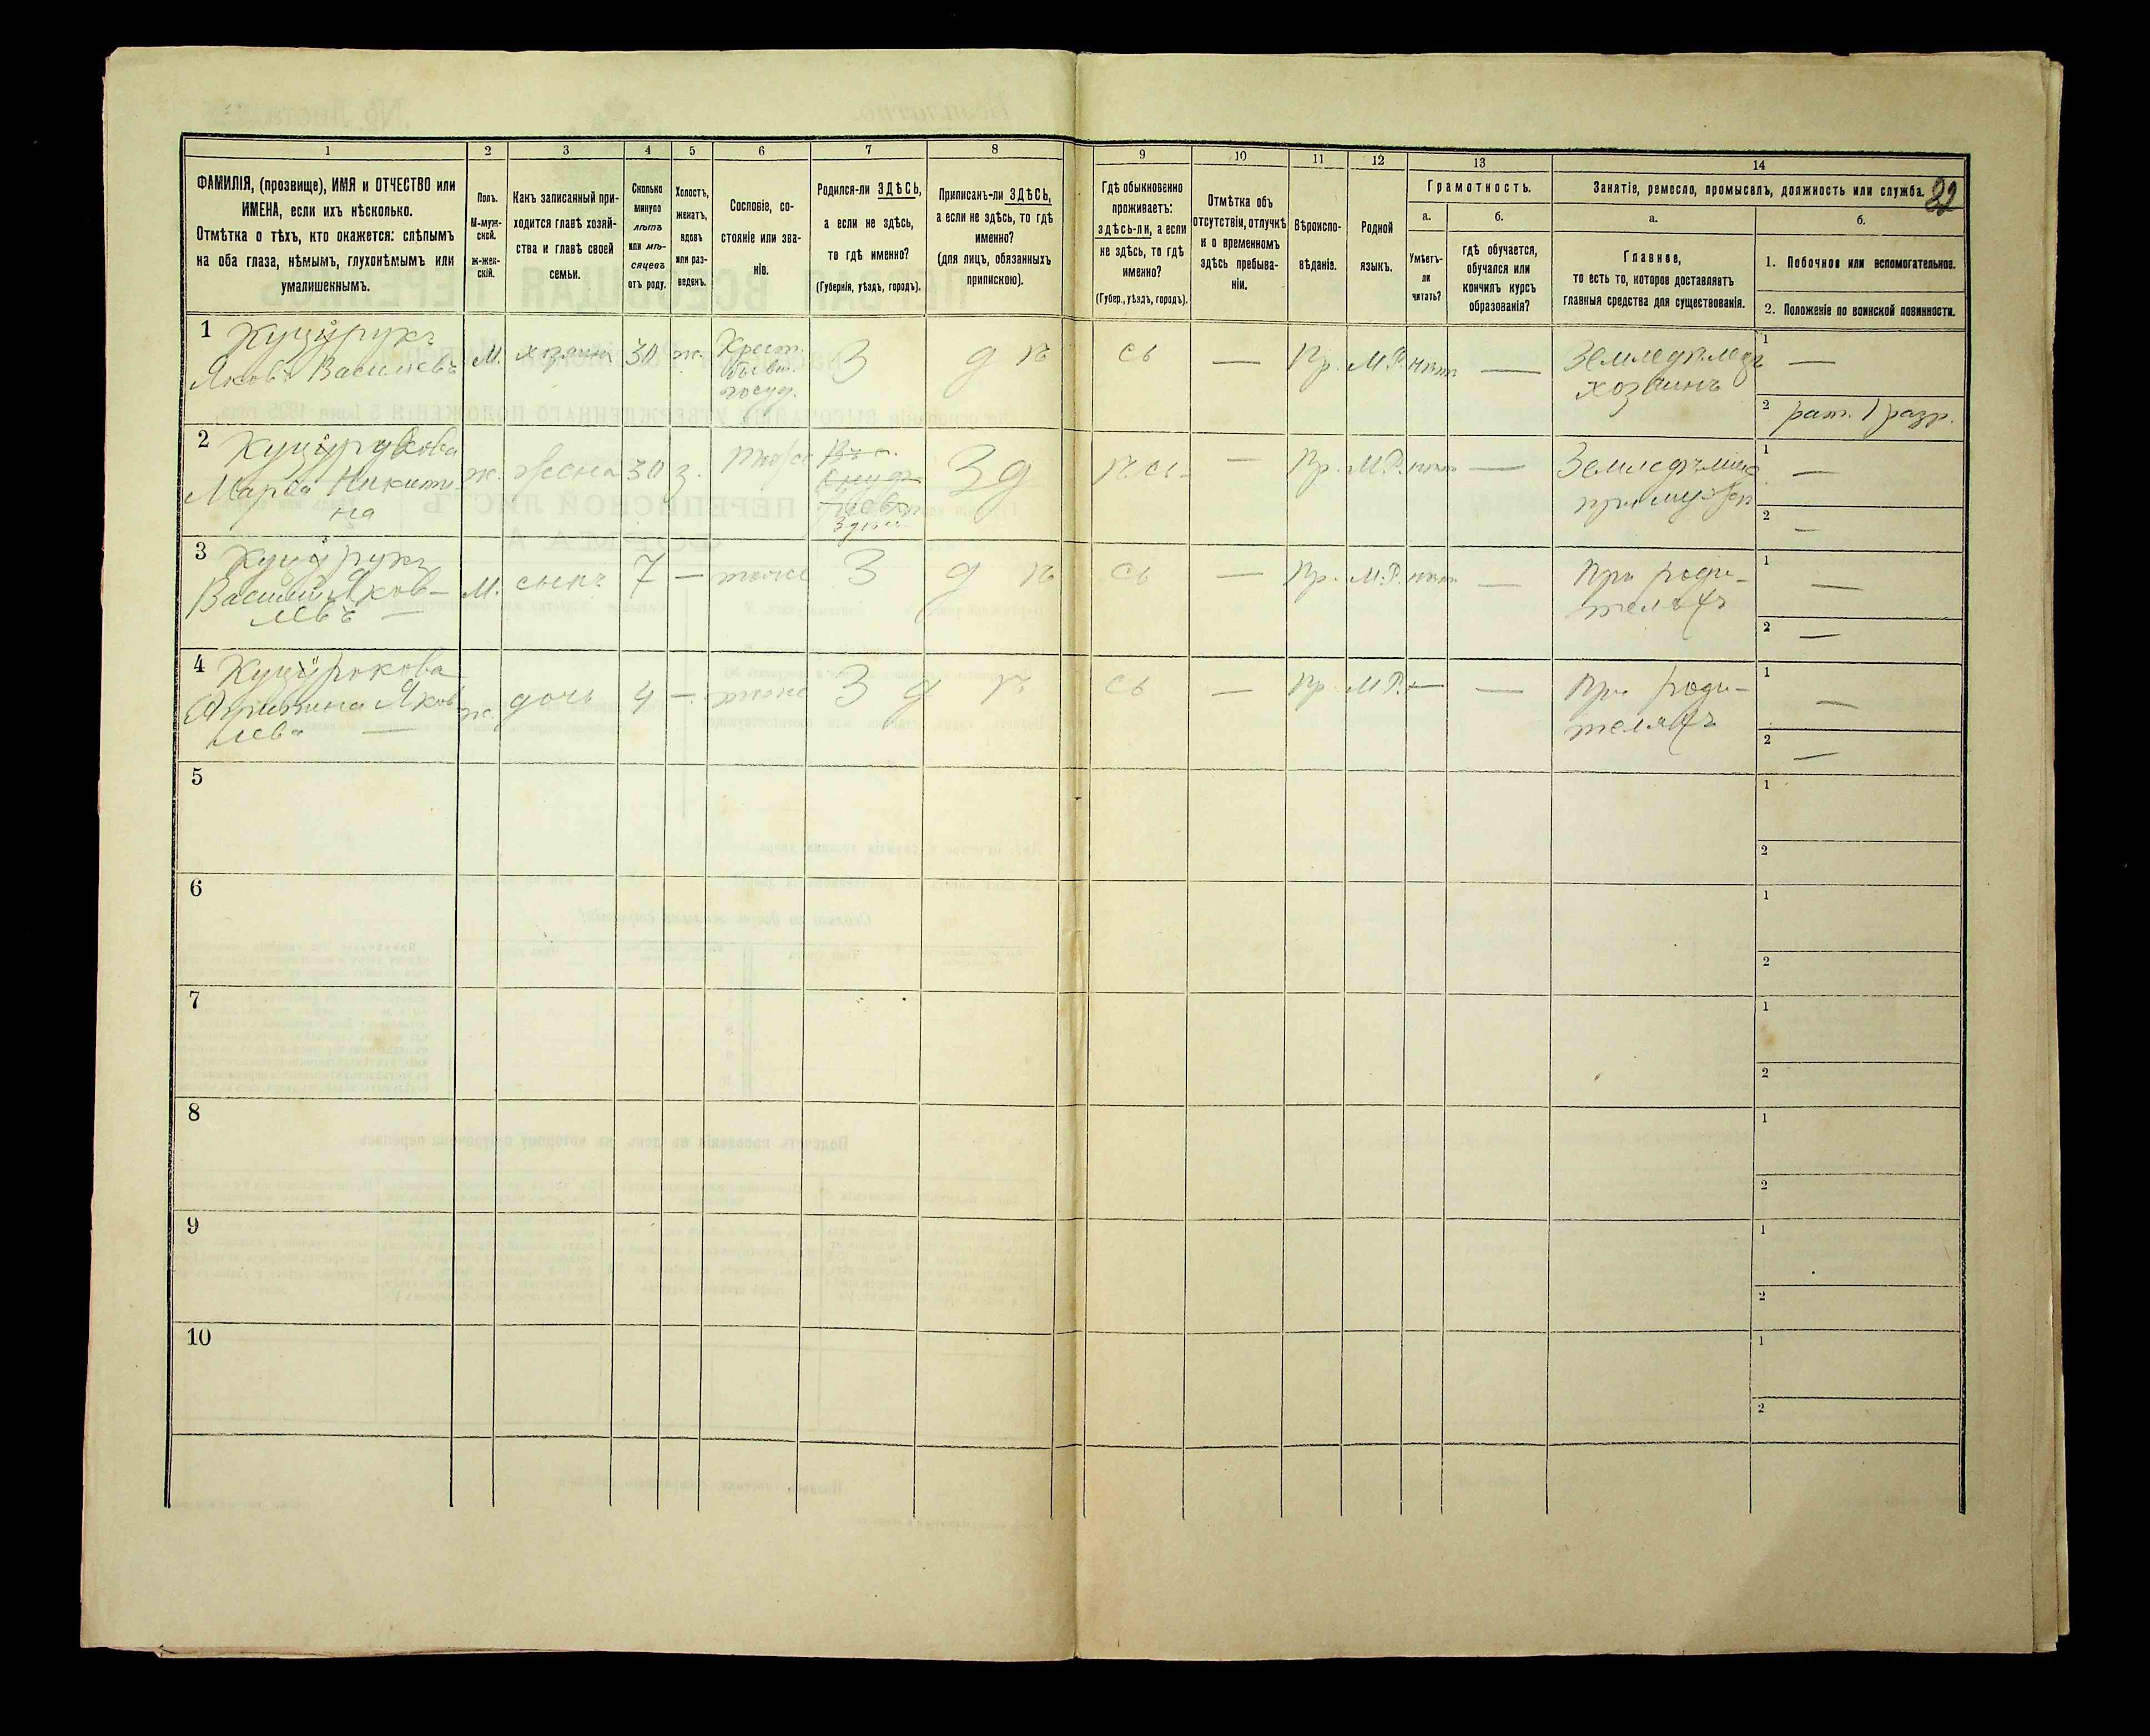 1
2
3
4
5
6
7
8
9
10
11
12
13
14
ФАМИЛІЯ, (прозвище), ИМЯ и ОТЧЕСТВО или
ИМЕНА, если ихъ нѣсколько.
Отмѣтка о тѣхъ, кто окажется: слѣпымъ
на оба глаза, нѣмымъ, глухонѣмымъ или
умалишеннымъ.
Полъ.
М-муж-
ской.
ж-жен-
скій.
Какъ записанный при-
ходится главѣ хозяй-
ства и главѣ своей
семьи.
Сколько
минуло
лѣтъ
или мѣ-
сяцевъ
отъ роду.
Холостъ,
женатъ,
вдовъ
или раз-
веденъ.
Сословіе, со-
стояніе или зва-
ніе.
Родился-ли ЗДѢСЬ,
а если не здѣсь,
то гдѣ именно?
(Губернія, уѣздъ, городъ).
Приписанъ-ли ЗДѢСЬ,
а если не здѣсь, то гдѣ
именно?
(для лицъ, обязанныхъ
припискою).
Гдѣ обыкновенно
проживаетъ:
здѣсь-ли, а если
не здѣсь, то гдѣ
именно?
(Губер., уѣздъ, городъ).
Отмѣтка объ
отсутствіи, отлучкѣ
и о временномъ
здѣсь пребыва-
ніи.
Вѣроиспо-
вѣданіе.
Родной
языкъ.
Грамотность.
а.
Умѣетъ-
ли
читать?
б.
гдѣ обучается,
обучался или
кончилъ курсъ
образованія?
Занятіе, ремесло, промыселъ, должность или служба.
22
а.
Главное,
то есть то, которое доставляетъ
главныя средства для существованія.
б.
1. Побочное или вспомогательное.
2. Положеніе по воинской повинности.
1
Яковъ Васильевъ
М. хозяинъ 30 ж. Крест.
бывш.
госуд.
З д ѣ сь — Пр. М.Р. нѣтъ — Земледѣлецъ
хозяинъ
1 —
2 рат. 1 разр.
2
Марѳа Никити
на
ж. жена 30 з. тоже
здѣсь
Зд ѣсь — Пр. М.Р. нѣтъ — Земледѣлица
при мужѣ
1 —
2 —
3
Василий Яков-
левъ —
М. сынъ 7 — тоже З д ѣ сь — Пр. М.Р. нѣтъ — При роди-
теляхъ
1 —
2 —
4
Яков
лева —
ж. дочь 4 — тоже З д ѣ сь — Пр. М.Р. — — При роди-
теляхъ
1 —
2 —
5
1
2
6
1
2
7
1
2
8
1
2
9
1
2
10
1
2